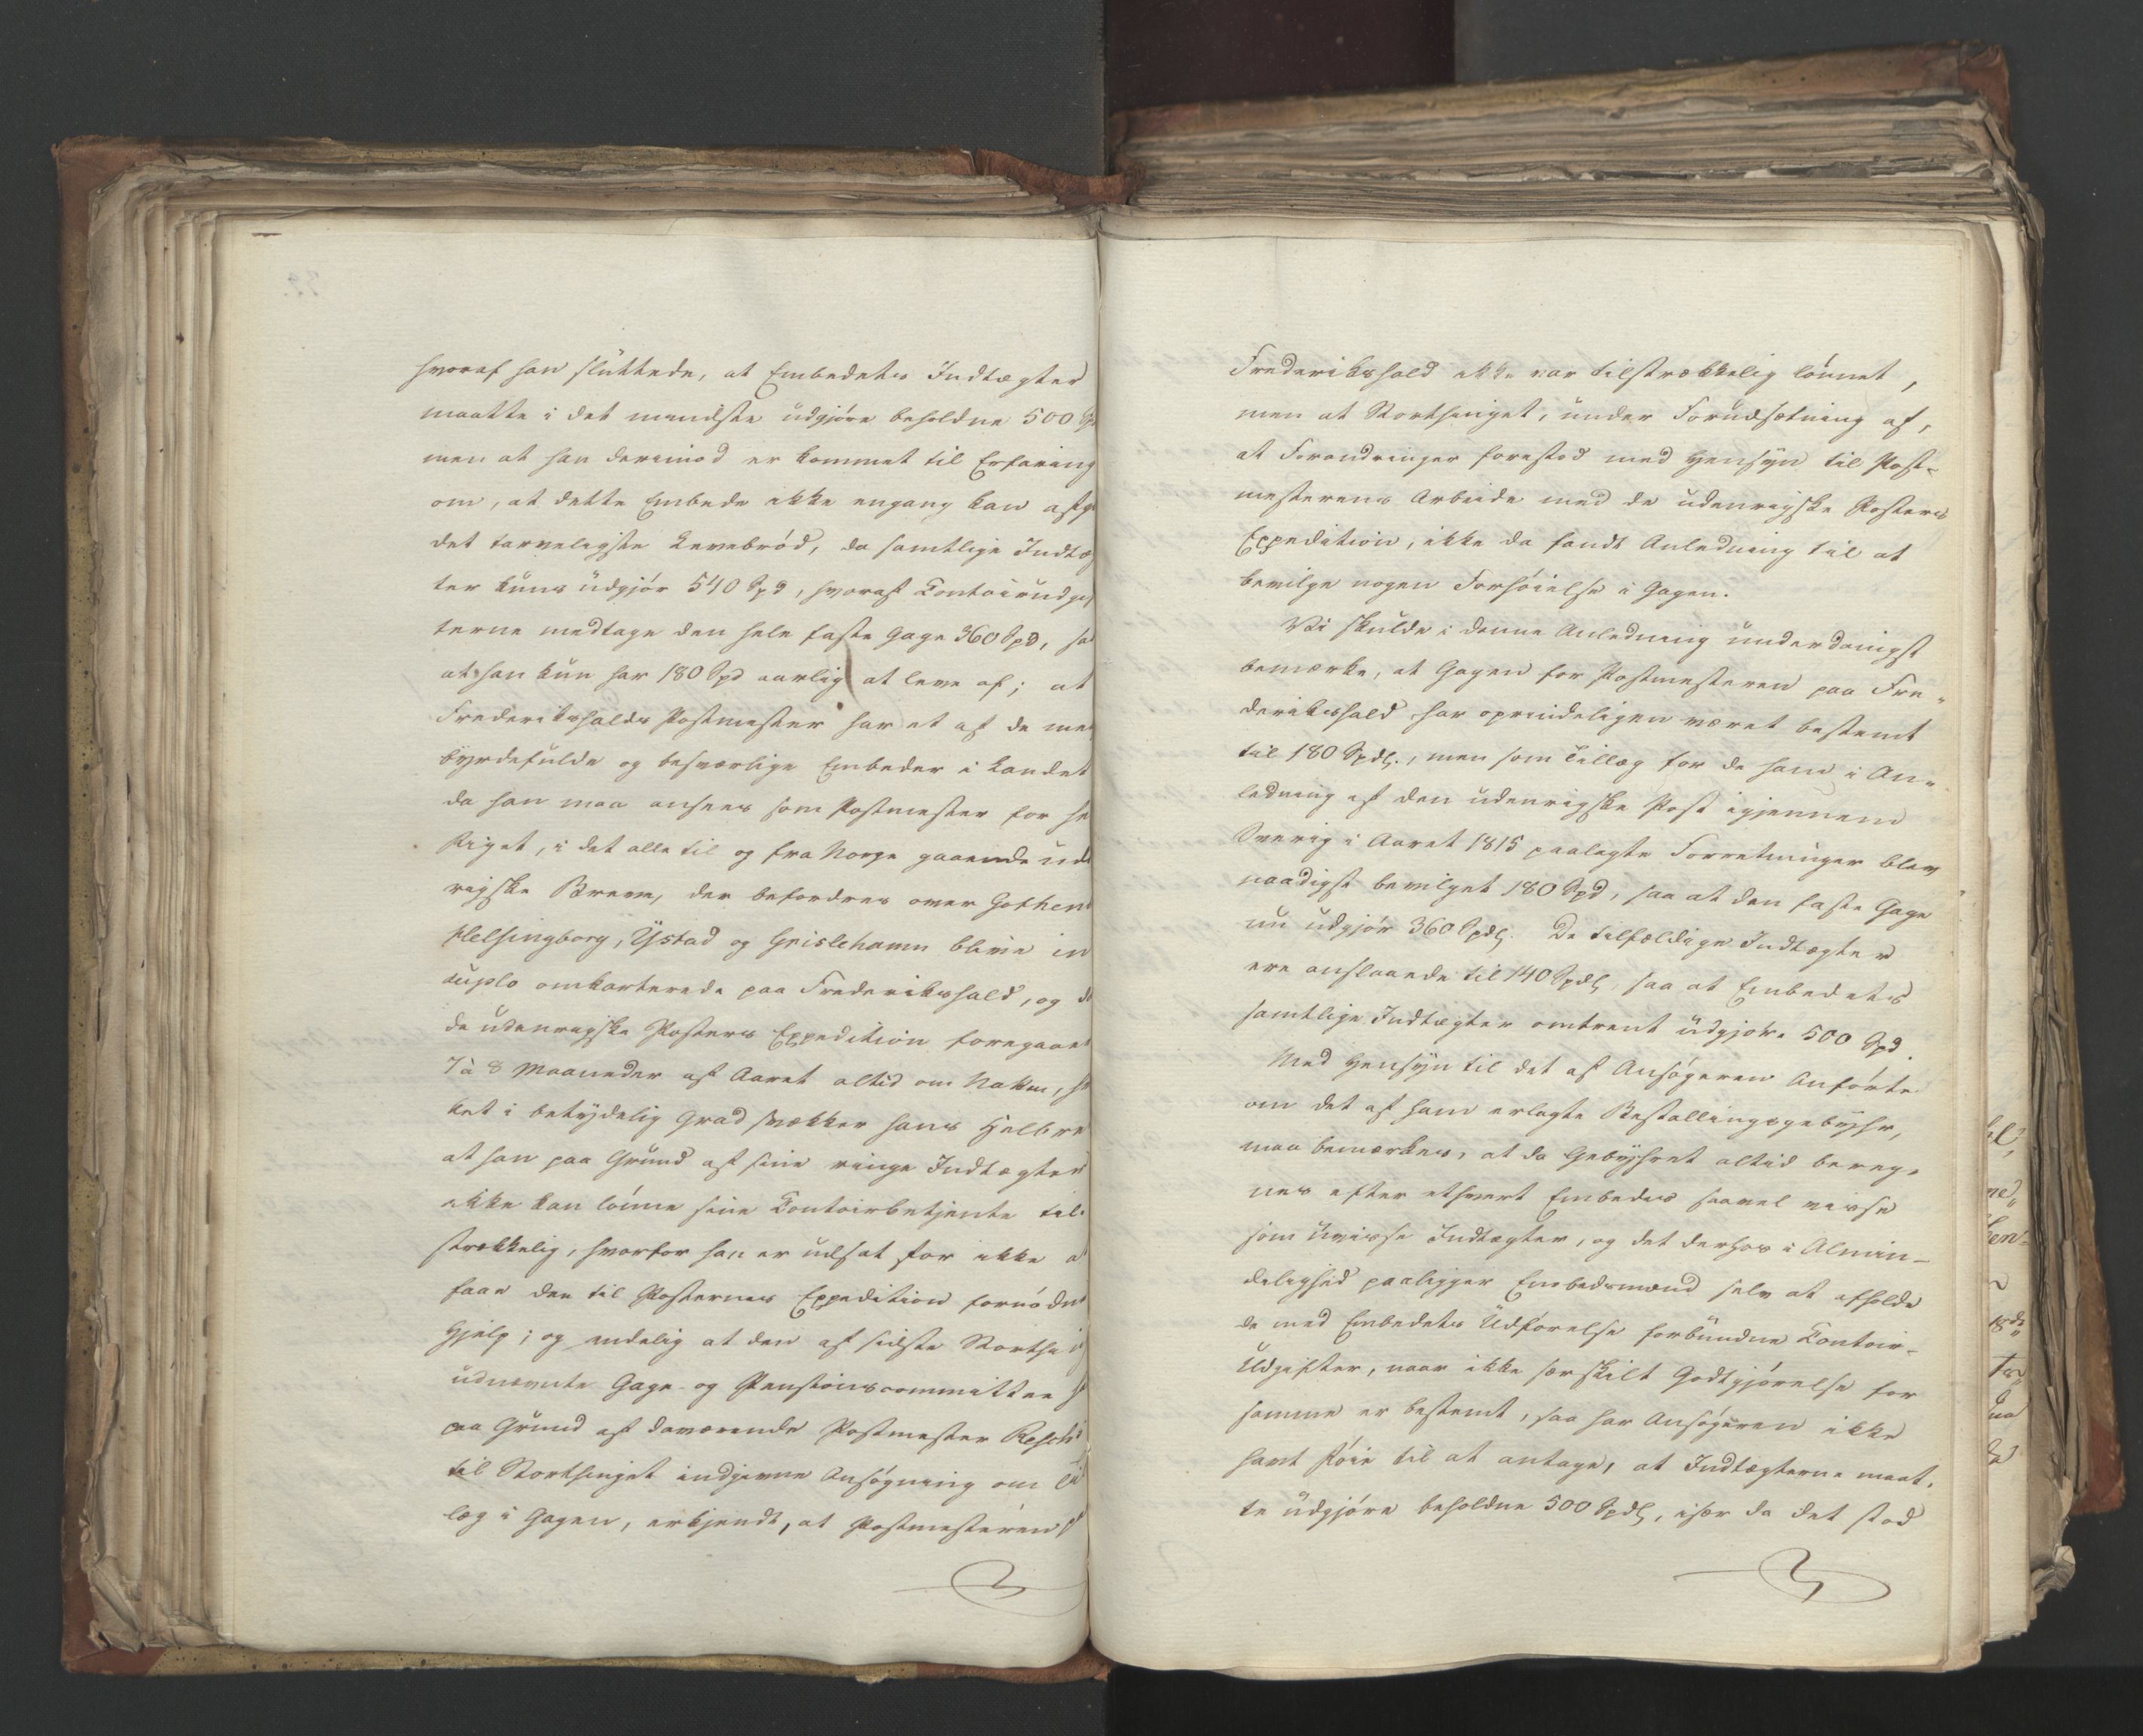 hvoraf han sluttede, at Embedets Indtægter
maatte i det mindste udgjøre beholdne 500 Sp
men at han derimod er kommet til Erfaring
om, at dette Embede ikke engang kan afgi
det tarveligste Levebrød, da samtlige Indtæg
ter kuns udgjør 540 Spd, hvoraf Contoirudgif
terne medtage den hele faste Gage 360 Spd, saa
at han kun har 180 Spd aarlig at leve af; at
Frederikshalds Postmester har et af de mest
byrdefulde og besværlige Embeder i Landet
da han maa ansees som Postmester for hele
Riget, i det alle til og fra Norge gaaende uden
rigske Breve, der befordres over Gothenb
Helsingborg, Ystad og Grislehamn blive in
duplo omkarterede paa Frederikshald, og da
de udenrigske Posters Expedition foregaaer
7 à 8 Maaneder af Aaret altid om Natten, hvil
ket i betydelig Grad svækker hans Helbred
at han paa Grund af sine ringe Indtægter
ikke kan lønne sine Contoirbetjente til-
strækkelig, hvorfor han er udsat for ikke at
faae den til Posternes Expedition fornødne
Hjelp; og endelig at den af sidste Storthing
udnævnte Gage- og Pensionscommittee har
paa Grund af daværende Postmester Resch's
til Storthinget indgivne Ansøgning om Til
læg i Gagen, erkjendt, at Postmesteren p
Frederikshald ikke var tilstrækkelig lønnet,
men at Storthinget, under Forudsætning af,
at Forandringer forestod med Hensyn til Post-
mesterens Arbeide med de udenrigske Posters
Expedition, ikke da fandt Anledning til at
bevilge nogen Forhøielse i Gagen.
Vi skulde i denne Anledning underdanigst
bemærke, at Gagen for Postmesteren paa Fre-
derikshald har oprindeligen været bestemt
til 180 Spdlr., men som Tillæg for de ham i An-
ledning af den udenrigske Post igjennem
Sverig i Aaret 1815 paalagte Forretninger blev
naadigst bevilget 180 Spd, saa at den faste Gage
nu udgjør 360 Spdlr. De tilfældige Indtægter
ere anslaaede til 140 Spdlr, saa at Embedets
samtlige Indtægter omtrent udgjøre 500 Spd.
Med Hensyn til det af Ansøgeren Anførte
om det af ham erlagte Bestallingsgebyhr,
maa bemærkes, at da Gebyhret altid bereg-
nes efter ethvert Embedes saavel visse
som uvisse Indtægter, og det derhos i Almin-
delighed paaligger Embedsmænd selv at afholde
de med Embedets Udførelse forbundne Contoir-
Udgifter, naar ikke særskilt Godtgjørelse for
samme er bestemt, saa har Ansøgeren ikke
havt Føie til at antage, at Indtægterne maat-
te udgjøre beholdne 500 Spdlr, især da det stod